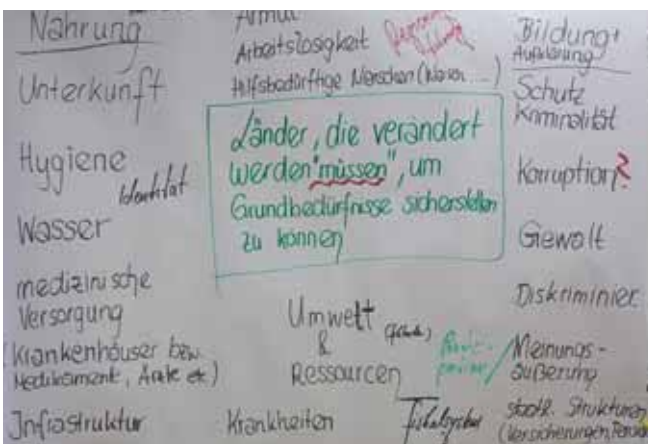 Nahrung
Unterkunft
Hygiene
Identität
Wasser
medizinische
Versorgung
(Krankenhäuser bzw.
Medikament, Ärzte etc)
Infrastruktur
Armut
Arbeitslosigkeit
Hilfsbedürftige Menschen (Waisen ...)
Länder, die verändert
werden "müssen", um
Grundbedürfnisse sicherstellen
zu können
Umwelt
&
Ressourcen
Krankheiten
Bildung +
Aufklärung
Schutz
Kriminalität
Korruption?
Gewalt
Diskriminier.
Meinungs-
äußerung
staatl. Strukturen
(Versicherungen,